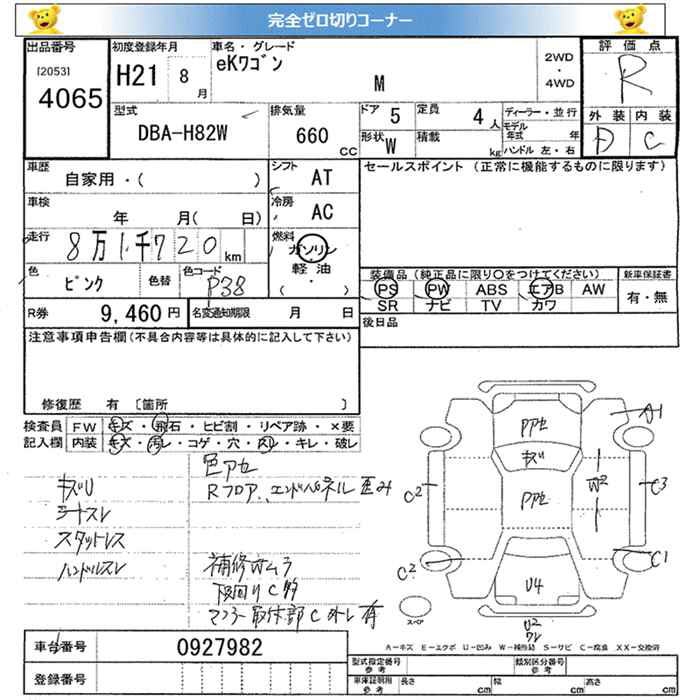 完全ゼロ切りコーナー
出品番号 初度登録年月 車名・グレード 2WD ・ 4WD 評価点
[2053] 4065 H21 8月 eKワゴン M R
型式 排気量 ドア 5 定員 4人 ディーラー・並行 外装 内装
DBA-H82W 660 CC 形状 W 積載 kg モデル年式 年 D C
ハンドル 左・右
車歴 シフト AT セールスポイント (正常に機能するものに限ります)
自家用・( )
車検 冷房 AC
年 月( 日)
走行 8万1千720km 燃料 ガソリン 軽油 ( ・ )
色 ピンク 色替 色コード P38
装備品 (純正品に限り○をつけてください) 新車保証書
PS PW ABS エアB AW 有・無
SR ナビ TV カワ
R券 9,460円 名変通知期限 月 日
後日品
注意事項申告欄(不具合内容等は具体的に記入して下さい)
修復歴 有 〔箇所 〕
検査員 FW キズ・飛石・ヒビ割・リペア跡・×要
記入欄 内装 キズ・汚レ・コゲ・穴・凹ル・キレ・破レ
色アセ
Rフロア、エンドパネル歪み
キズU
シートスレ
スタットレス
ハンドルスレ
補修ムラ
下回りC
マフラー取付部C外レ有
A1
PPセ
キズ
C2 PPセ W2 C3
C2 C1
U4
スペア
U2
ワレ
A-キズ E-エクボ U-凹み W-補修跡 S-サビ C-腐食 XX-交換済
車台番号 0927982
登録番号
型式指定番号 参考 類別区分番号 参考
車庫証明用 参考 長さ cm 幅 cm 高さ cm